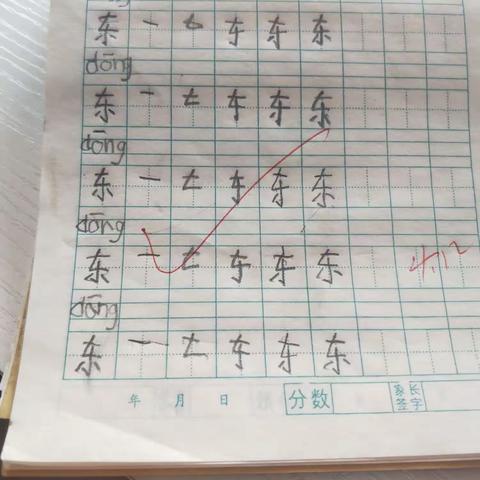 东 一 𠂇 车 东 东
dōng
东 一 七 车 东 东
dōng
东 一 七 车 东 东
dōng
东 一 七 车 东 东
4.12
dōng
东 一 七 车 东 东
年 月 日 分数 家长签字